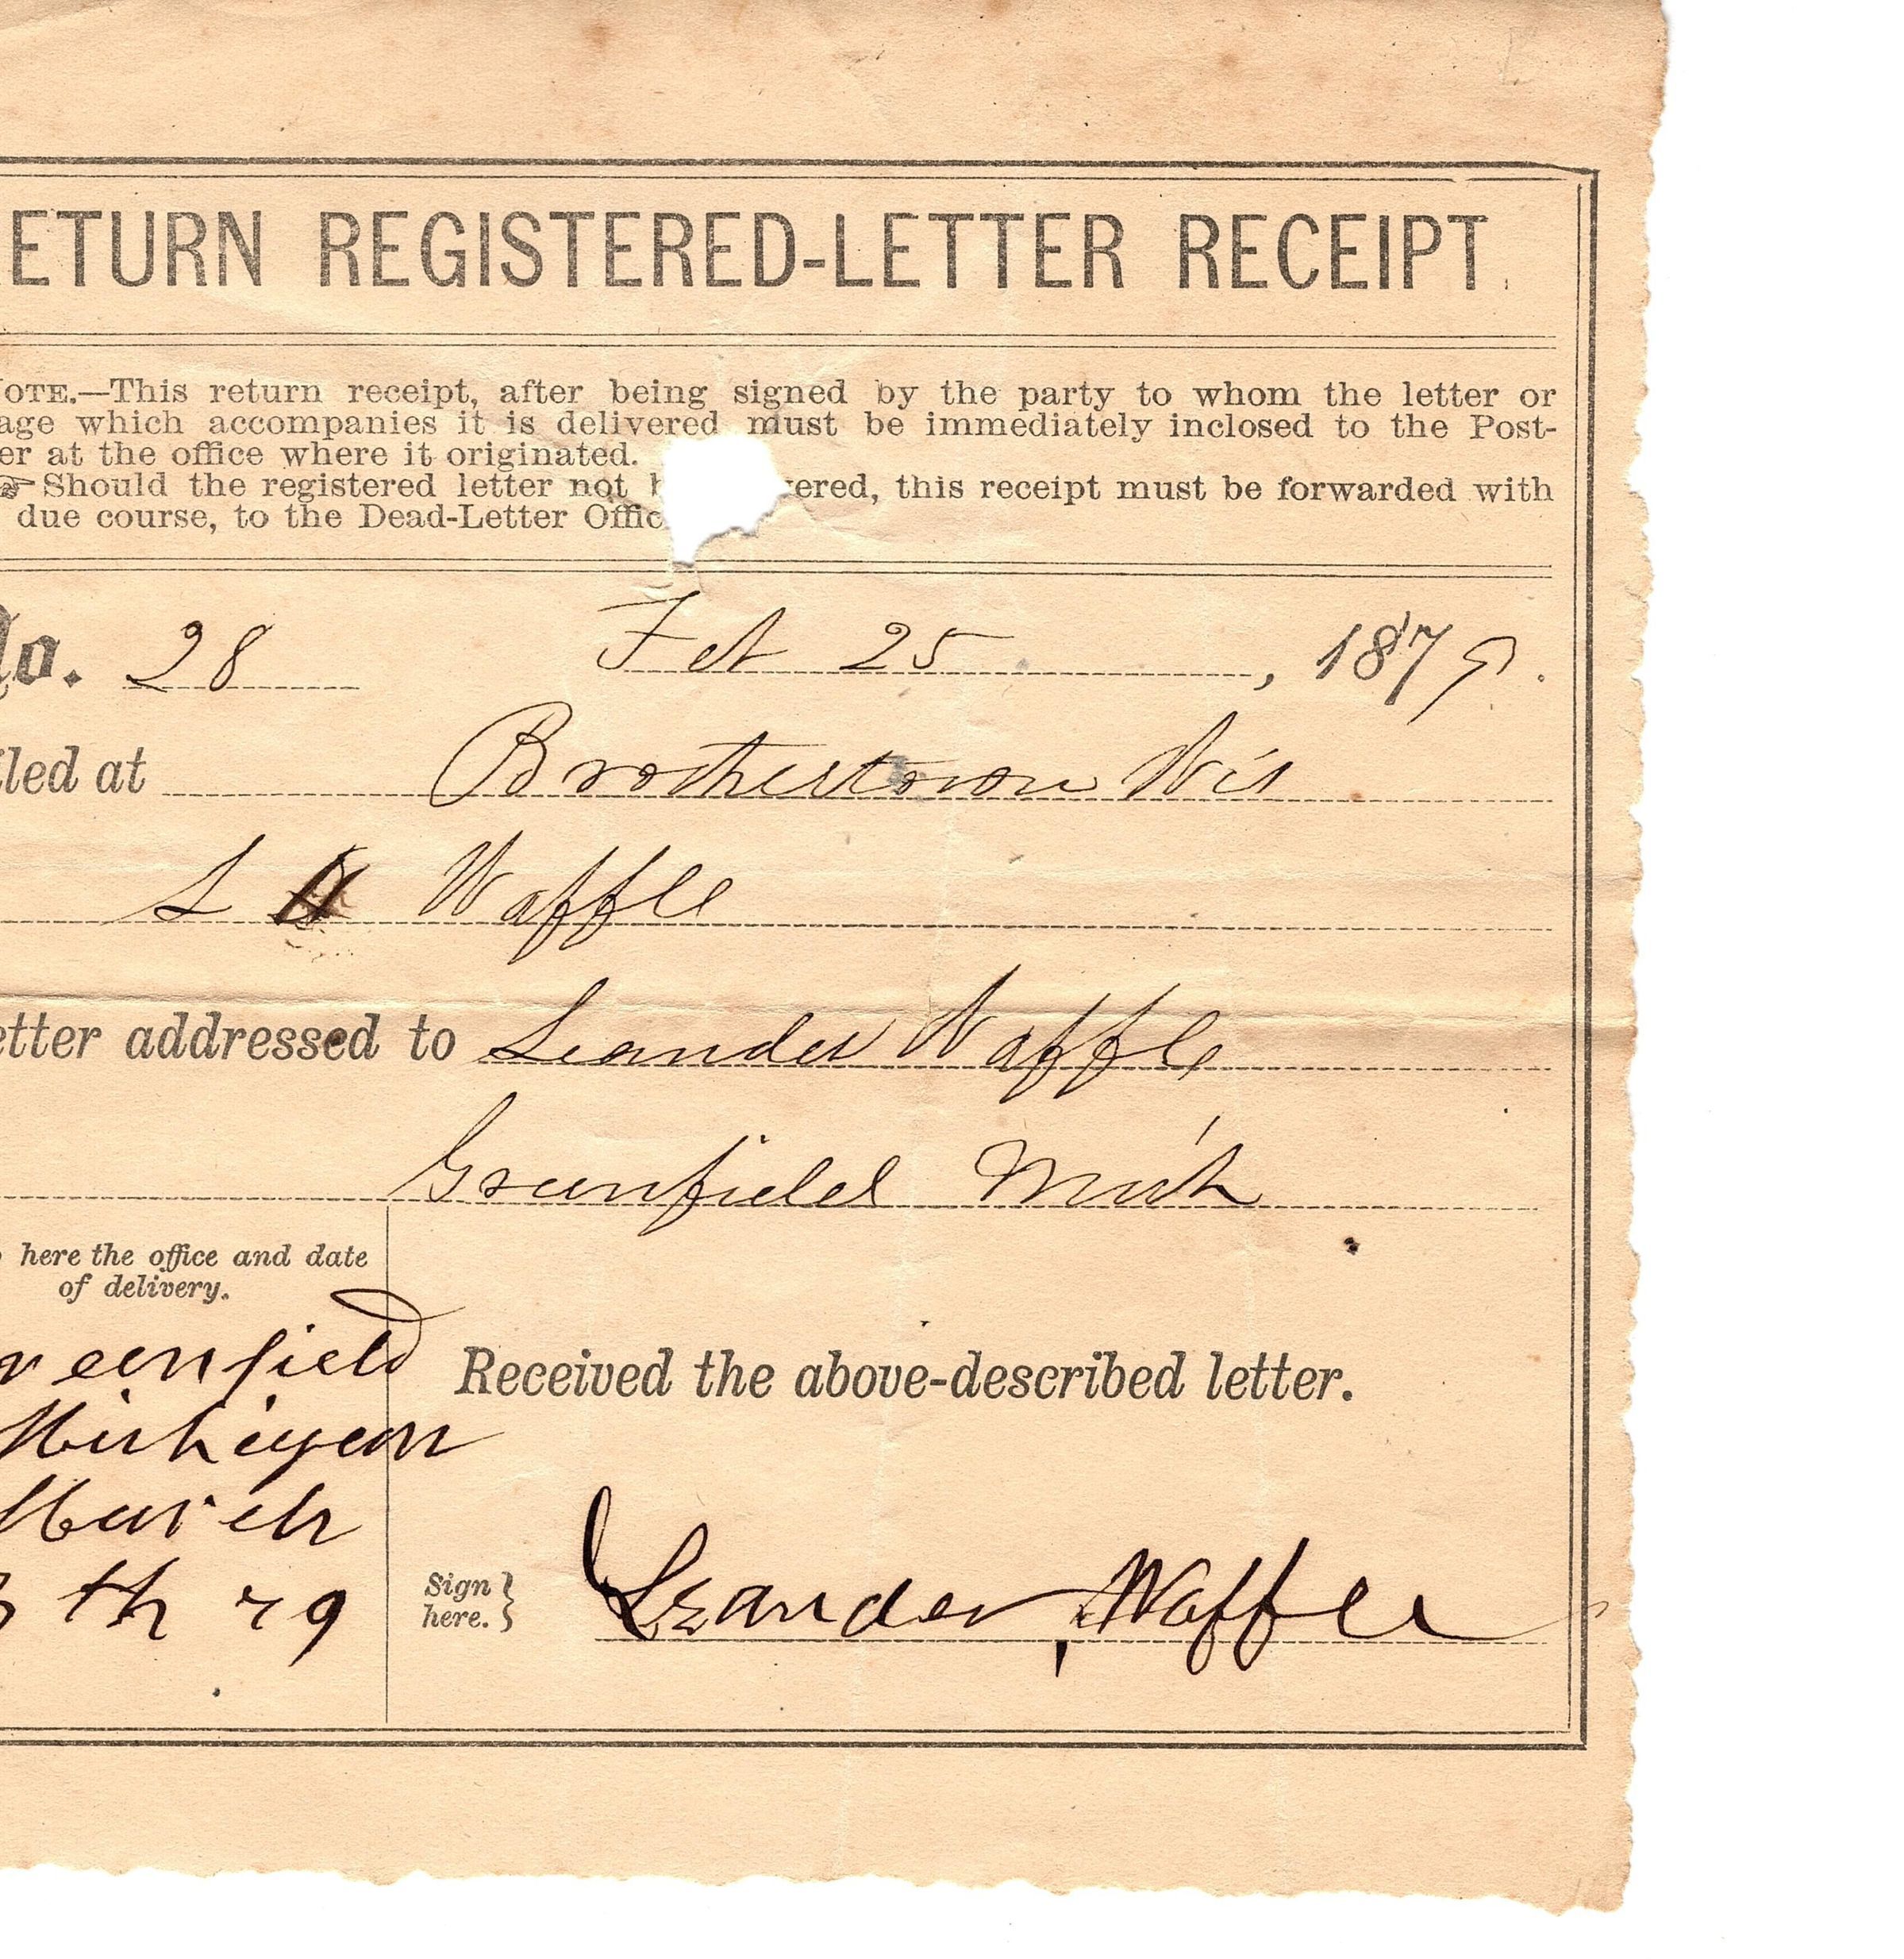 ETURN REGISTERED-LETTER RECEIPT.
OTE.—This return receipt, after being signed by the party to whom the letter or
age which accompanies it is delivered must be immediately inclosed to the Post-
er at the office where it originated.
☞Should the registered letter not b ered, this receipt must be forwarded with
due course, to the Dead-Letter Offic
No. 28 Feb 25, 1879.
led at Brothertown Wis
L A Waffle
etter addressed to Leander Waffle
Greenfield Mich
here the office and date
of delivery.
reenfield
Michigan
March
th 79
Received the above-described letter.
Sign
here.
Leander, Waffle